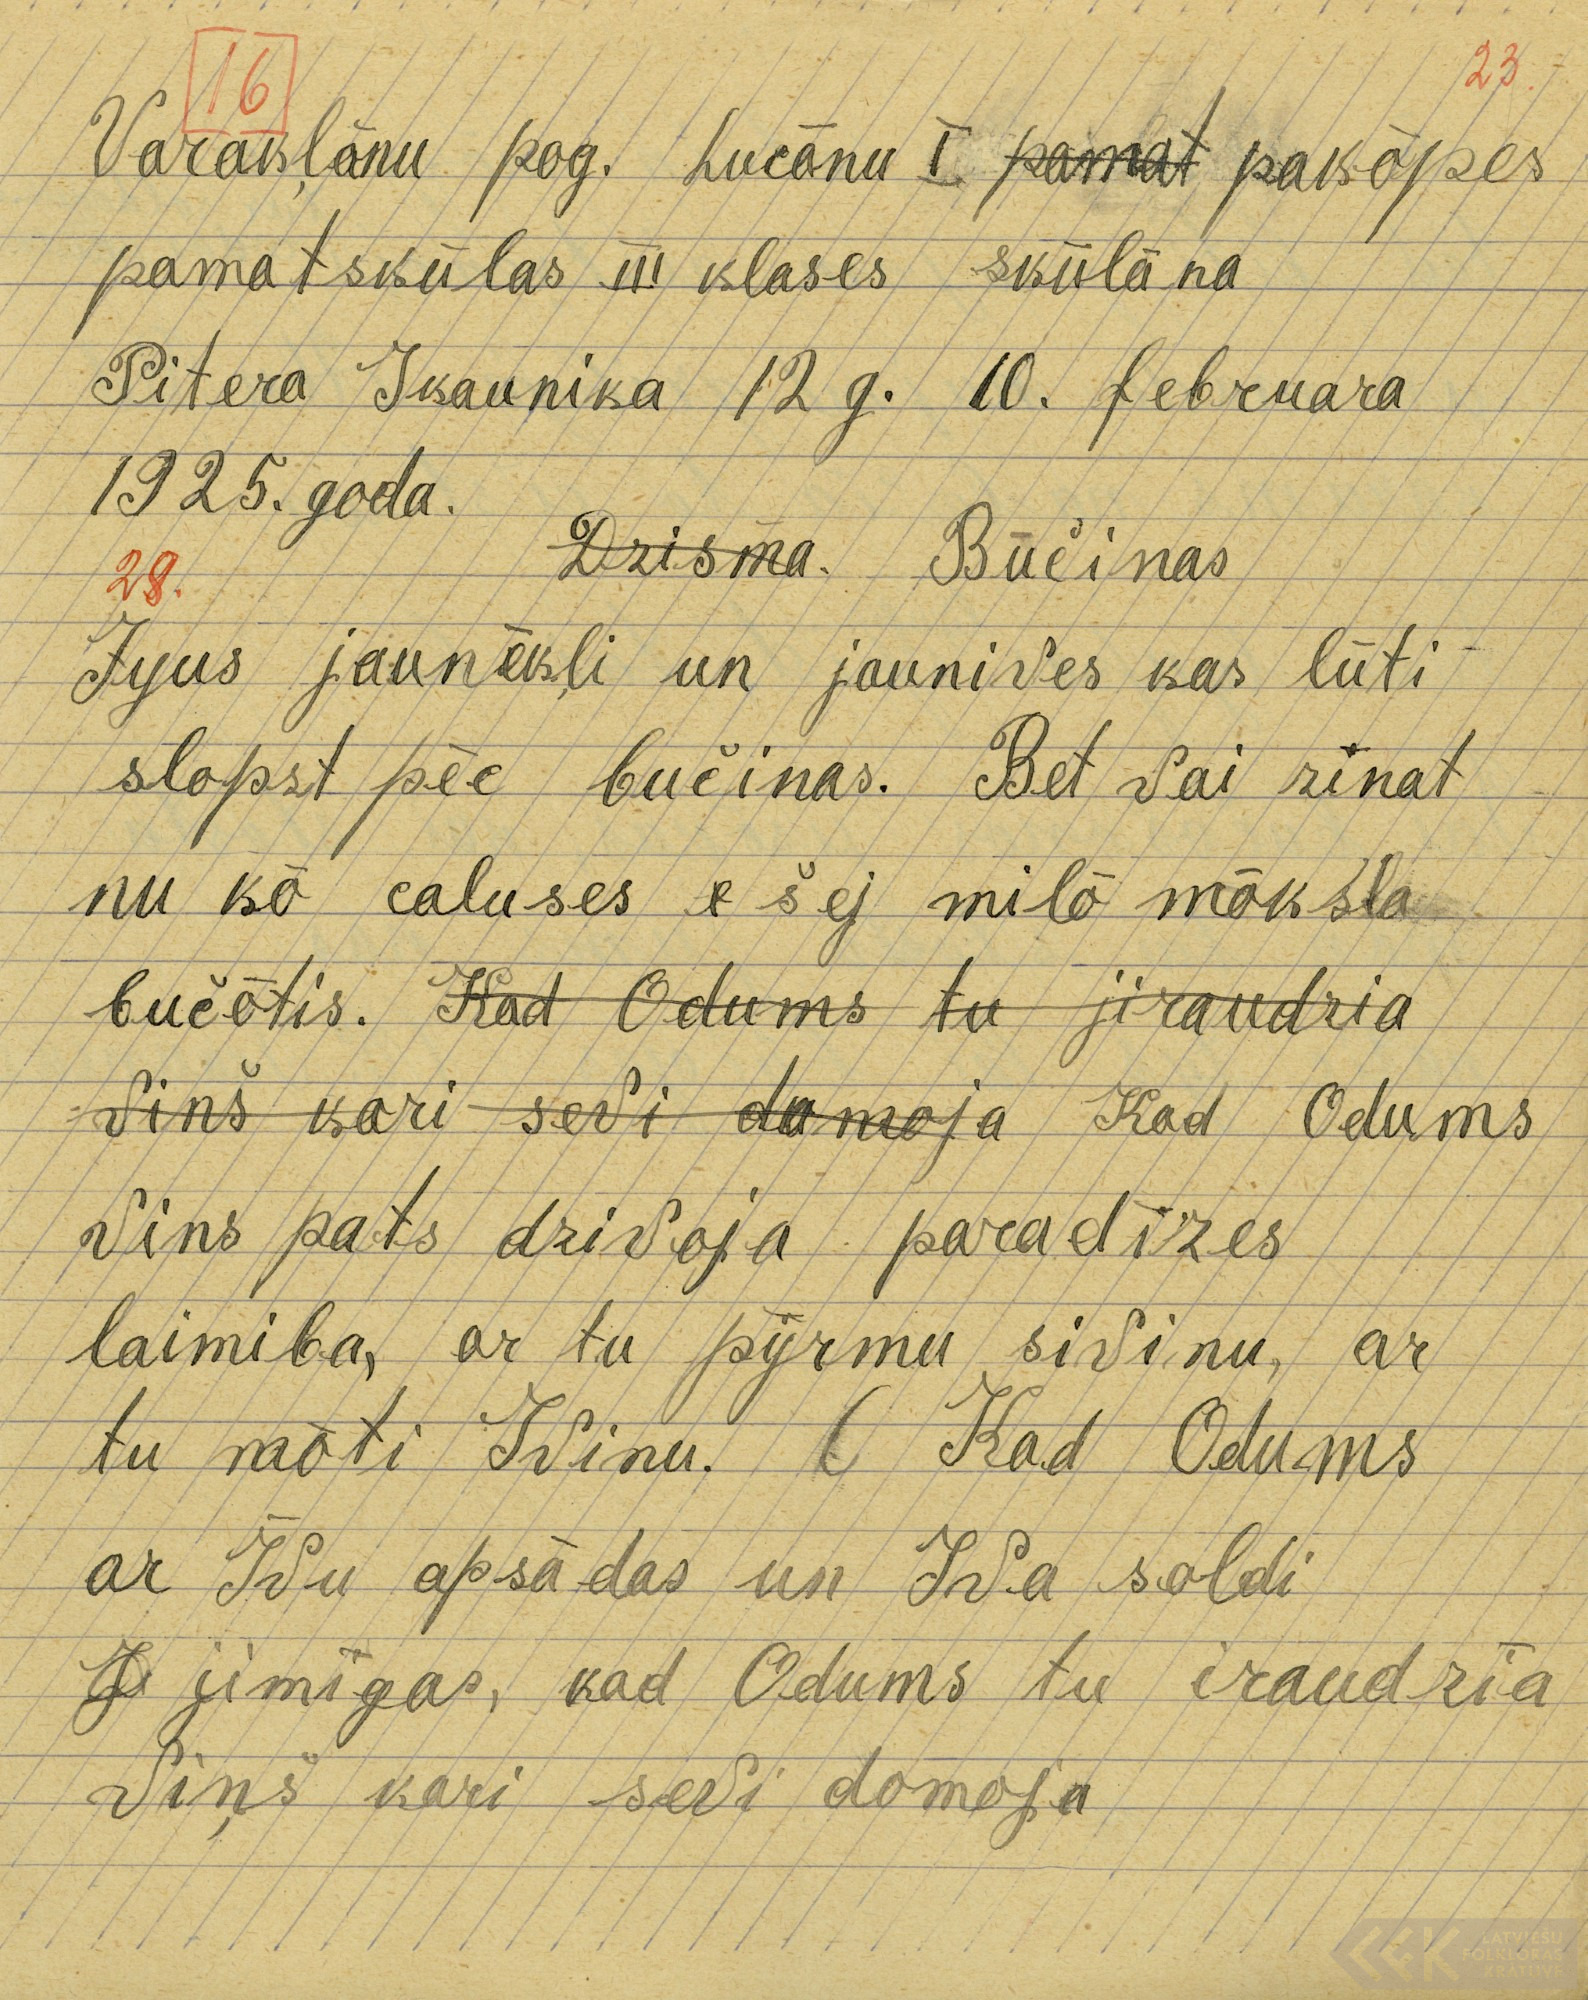 16
23.
Varakļānu pog. Lucānu I. pamat pakōpes
pamatskūlas III klases skūlāna
Pitera Ikaunika 12 g. 10. februara
1925. goda.
Dzisma. Būčinas
28.
Jyus jaunēkļi un jaunives kas lūti
slopst pēc bučinas. Bet vai zinat
nu kō caluses šej milō mōksla
bučōtis. Kad Odums tu jiraudzia
vinš kari sevi damoja Kad Odums
vins pats dzivoja paradīzes
laimiba, ar tu pȳrmu sivinu, ar
tu mōti Ivinu. ( Kad Odums
ar Īvu apsādas un Iva soldi
jimīgas, kad Odums tu iraudzīa
viņš kari sevi domoja
LATVIEŠU
FOLKLORAS
KRĀTUVE